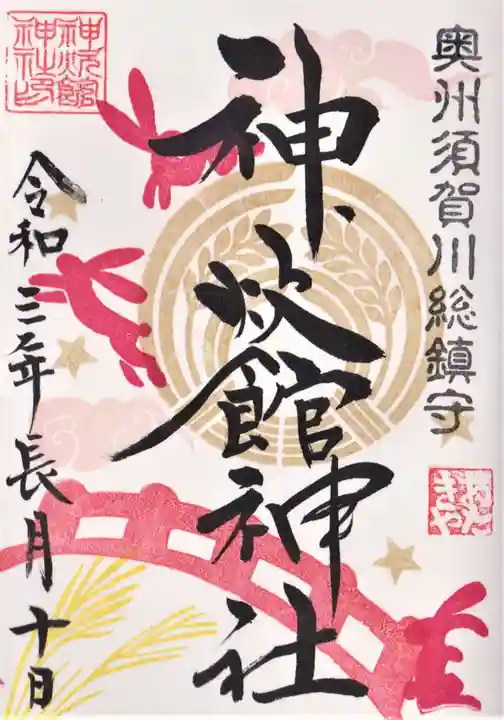 奥州須賀川総鎮守
神炊館神社
令和三年長月十日
神炊館
神社印
おた
きや